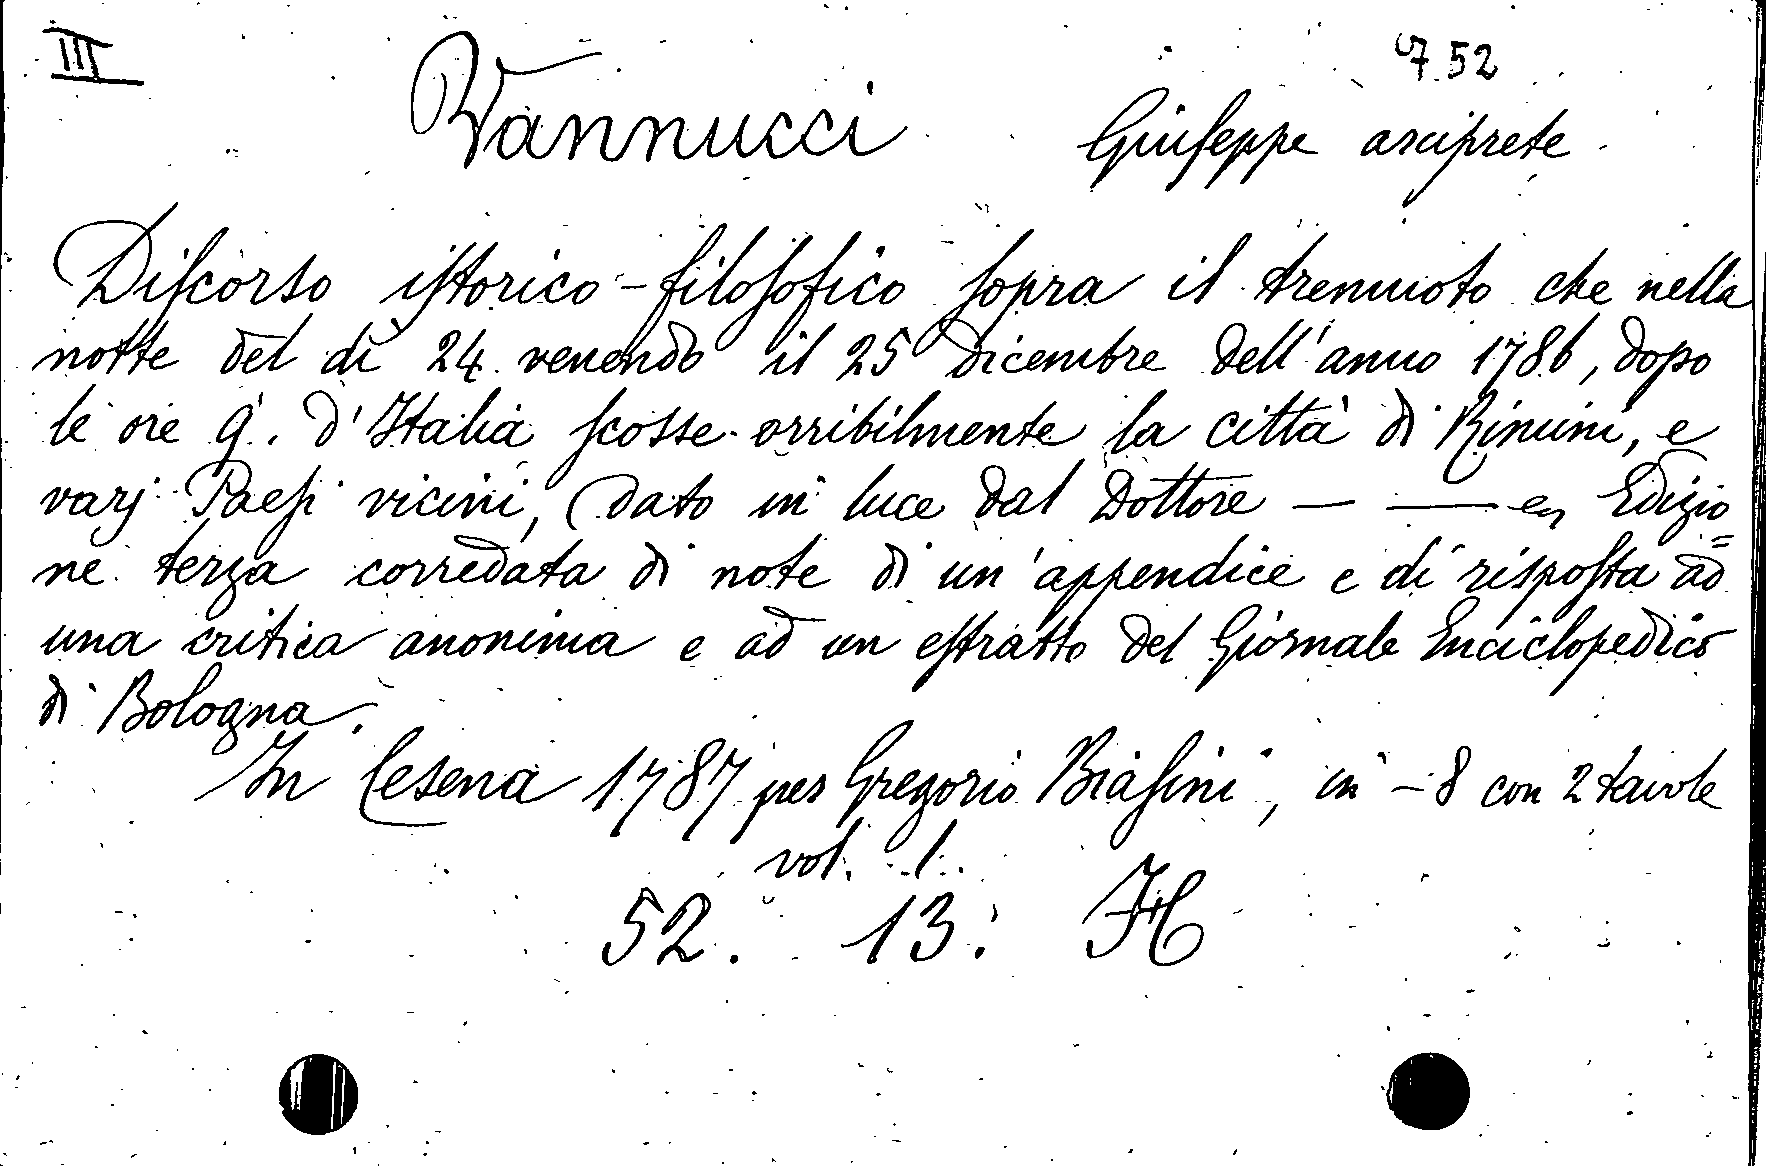 III
752
Vannucci Giuseppe arciprete
Discorso istorico-filosofico sopra il tremuoto che nella
notte del dì 24 venendo il 25 dicembre dell'anno 1786, dopo
le ore 9. d'Italia scosse orribilmente la città di Rimini, e
varj Paesi vicini, dato in luce dal Dottore — — Edizio
ne terza corredata di note di un'appendice e di risposta ad
una critica anonima e ad un estratto del Giornale Enciclopedico
di Bologna.
In Cesena 1787 per Gregorio Biasini, in-8 con 2 tavole
vol. 1.
52. 13. H